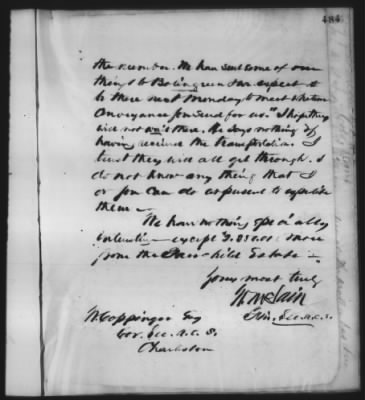 484
the number. We have sent some of our
things to Bolingreen & we expect
to be there next Monday to meet what ever
conveyance you send for us." I hope they
will not wait there. He says nothing of
having received the transportation. I
trust they will all get through. I
do not know any thing that I
or you can do at present to expedite
them —
We have nothing specially
interesting except $ more
from the Estate —
Yours most truly
Wm McLain
Fin. Sec. A.C.S.
W. Coppinger Esq
Cor. Sec. A.C.S.
Charleston